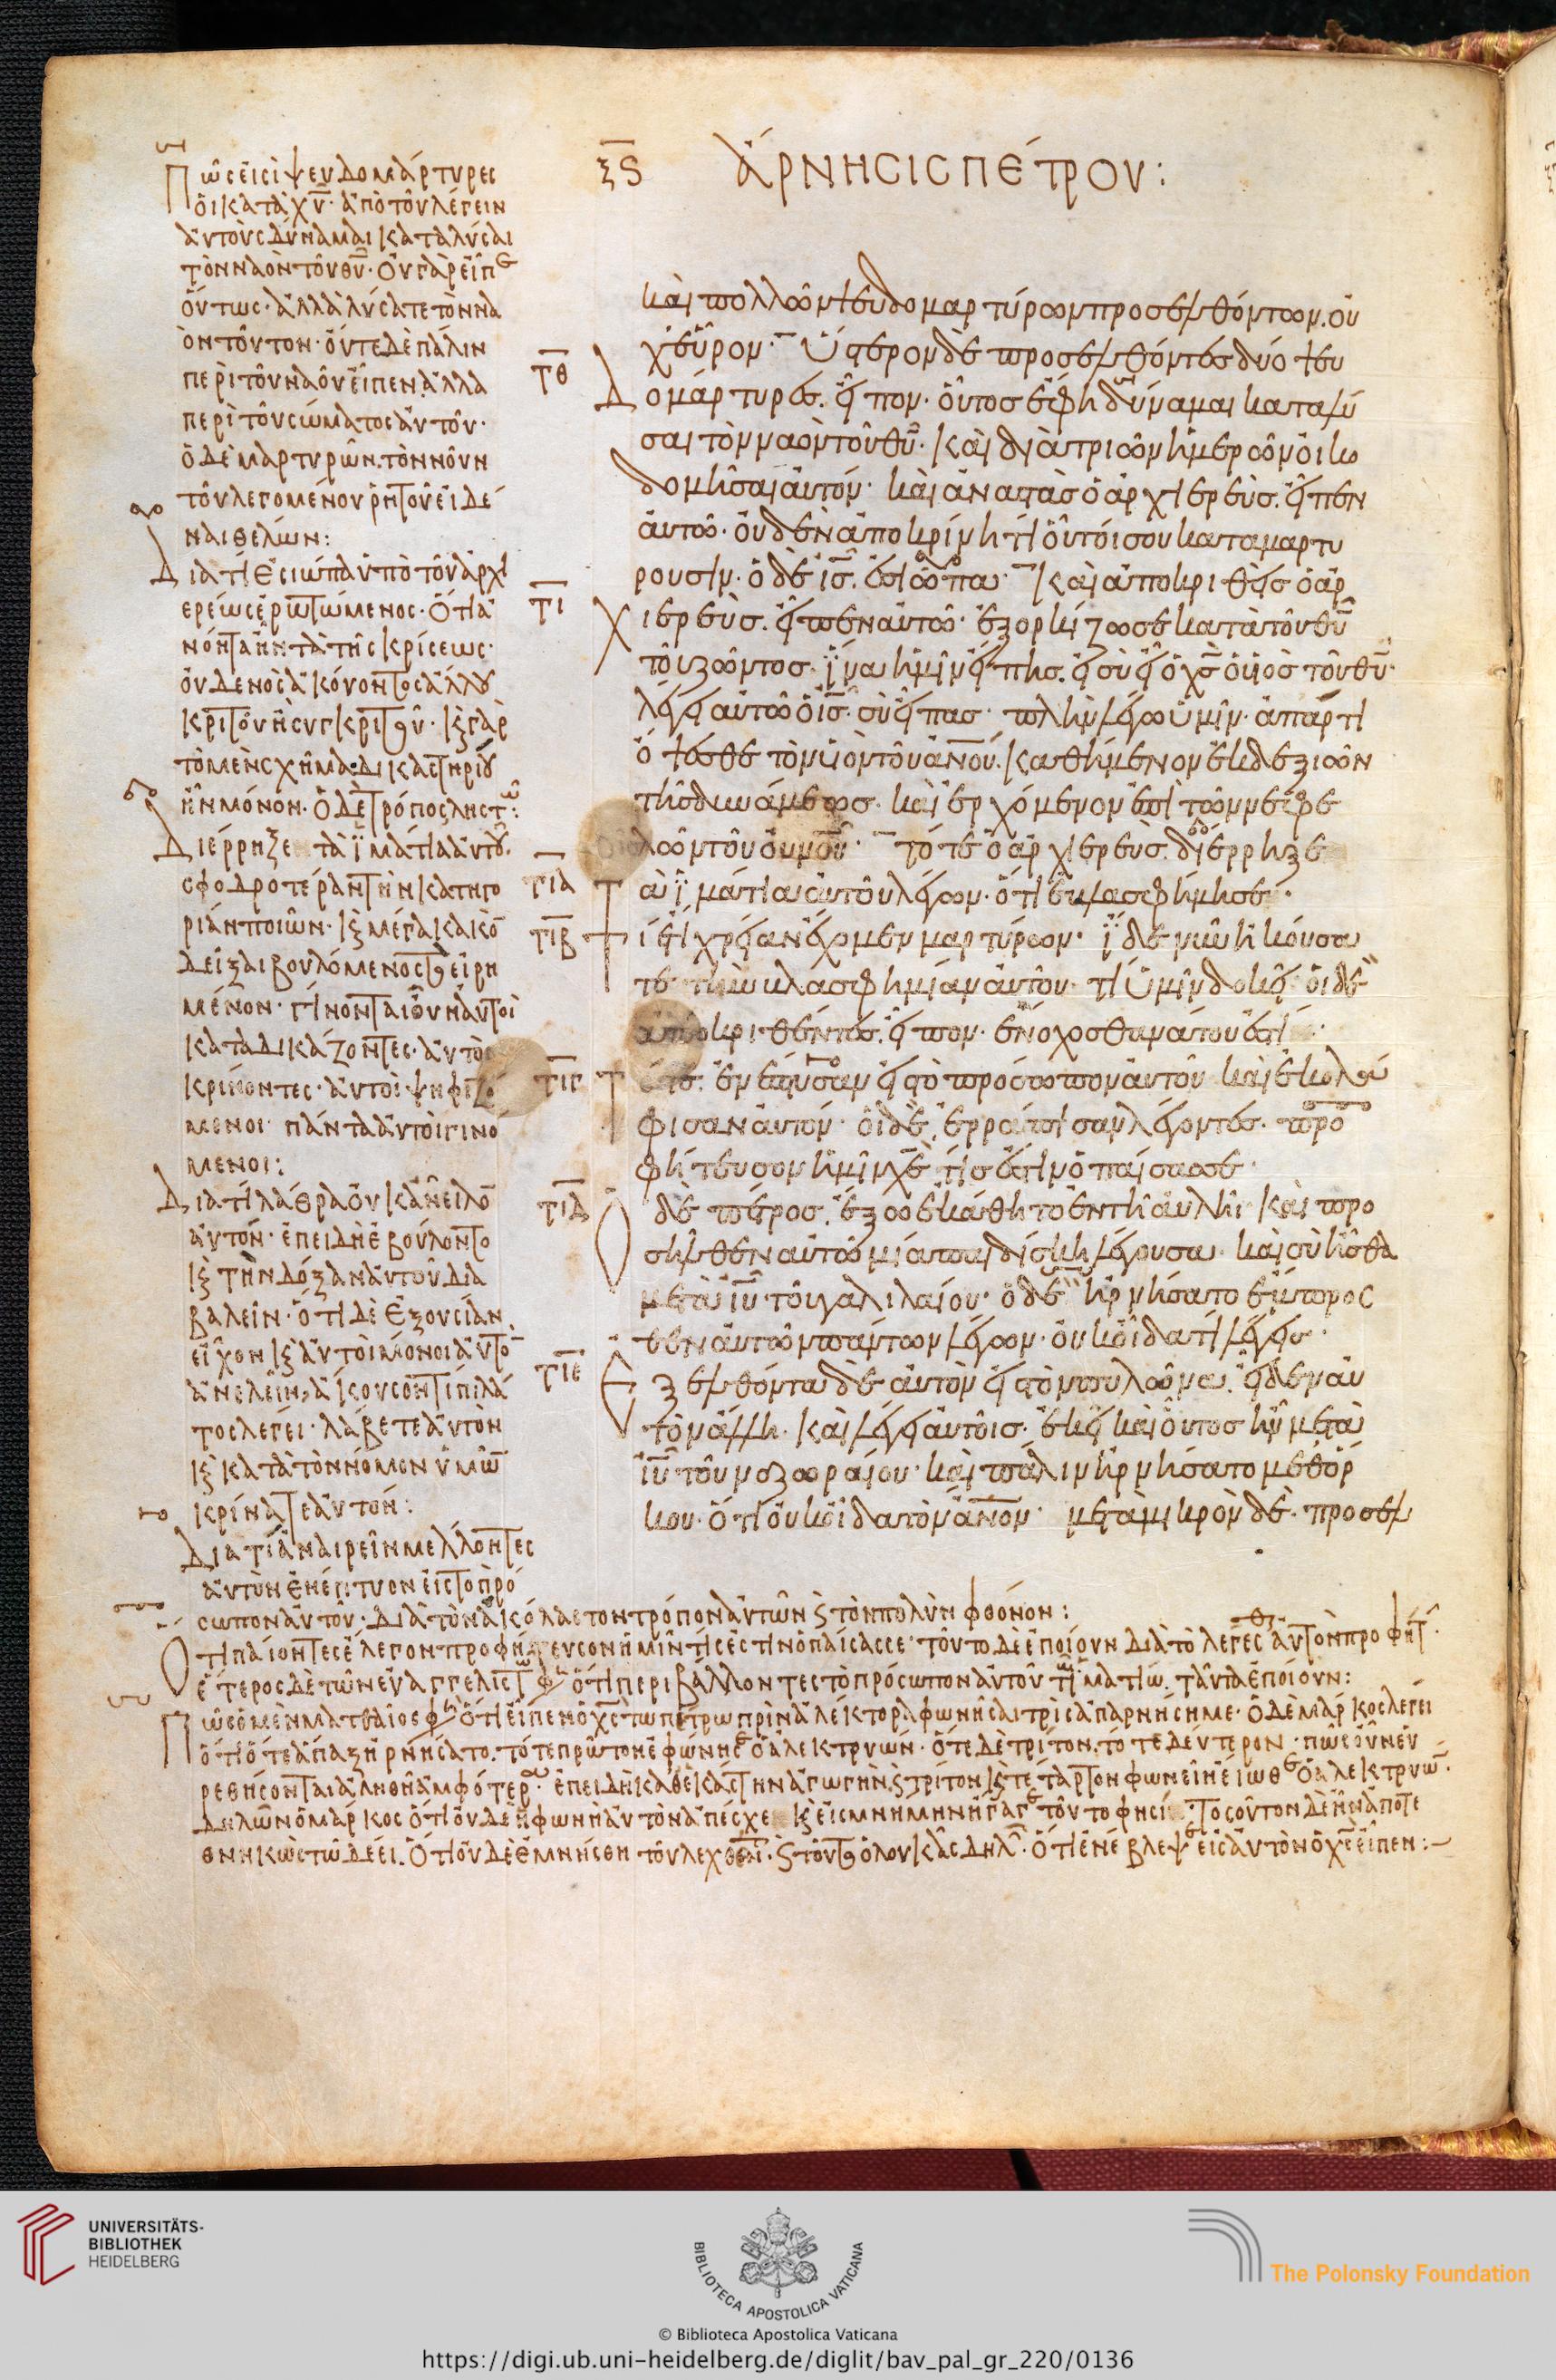 ξς ἄρνησις πέτρου:
καὶ πολλῶν ψευδομαρτύρων προσελθόντων. οὐ
χεὗρον· ὕστερον δὲ προσελθόντες δύο ψευ
δομάρτυρες. εἶπον· οὗτος ἔφη δύναμαι καταλῦ
σαι τὸν ναὸν τοῦ θῦ· καὶ διὰ τριῶν ἡμερῶν οἰκο
δομῆσαι αὐτόν· καὶ ἀναστὰς ὁ ἀρχιερεὺς. εἶπεν
αὐτῶ· οὐδὲν ἀποκρίνη τί οὗτοί σου καταμαρτυ
ρουσιν· ὁ δὲ ις. ἐσιώπα· καὶ ἀποκριθεὶς ὁ ἀρ
χιερεὺς. εἶπεν αὐτῶ· ἐξορκίζω σε κατὰ τοῦ θῦ
τοῦ ζῶντος. ἵνα ἡμῖν εἴπης. εἰ σὺ εἶ ὁ χς ὁ υἱὸς τοῦ θῦ·
λέγει αὐτῶ ὁ ις. σὺ εἶπας· πλὴν λέγω ὑμῖν· ἀπάρτι
ὄψεσθε τὸν υἱὸν τοῦ ἀνου. καθήμενον ἐκ δεξιῶν
τῆς δυνάμεως. καὶ ἐρχόμενον ἐπὶ τῶν νεφε
λῶν τοῦ οὐνοῦ· τότε ὁ ἀρχιερεὺς. διέρρηξε
τὰ ἱμάτια αὐτοῦ λέγων. ὅτι ἐβλασφήμησε·
τί ἔτι χρείαν ἔχομεν μαρτύρων· ἴδε νῦν ἠκούσα
τε τὴν βλασφημίαν αὐτοῦ· τί ὑμῖν δοκεῖ· οἱ δὲ
ἀποκριθέντες. εἶπον· ἔνοχος θανάτου ἐστί
τότε. ἐνέπτυσαν εἰς τὸ πρόσωπον αὐτοῦ καὶ ἐκολά
φισαν αὐτόν· οἱ δὲ. ἐρράπισαν λέγοντες. προ
φήτευσον ἡμῖν χε τίς ἐστιν ὁ παίσας σε·
ὁ δὲ πέτρος. ἔξω ἐκάθητο ἐν τῆ αὐλῆ· καὶ προ
σῆλθεν αὐτῶ μία παιδίσκη λέγουσα. καὶ σὺ ἦσθα
μετὰ ιυ τοῦ γαλιλαίου· ὁ δὲ ἠρνήσατο ἔμπροσ
θεν αὐτῶν πάντων λέγων. οὐκ οἶδα τί λέγεις·
ἐξελθόντα δὲ αὐτὸν εἰς τὸν πυλῶνα. εἶδεν αὐ
τὸν ἄλλη. καὶ λέγει αὐτοῖς. ἐκεῖ καὶ οὗτος ἦν μετὰ
ιυ τοῦ ναζωραίου· καὶ πάλιν ἠρνήσατο μεθ ὅρ
κου. ὅτι οὐκ οἶδα τὸν ἀνον· μετὰ μικρὸν δὲ. προσελ
τθ
τι
τια
τιβ
τιγ
τιδ
τιε
Πῶς εἰσὶ ψευδομάρτυρες
οἱ κατὰ χυ· ἀπὸ τοῦ λέγειν
αὐτοὺς δύναμαι καταλύσαι
τὸν ναὸν τοῦ θυ· οὐ γὰρ εἶπε
οὕτως· ἀλλὰ λύσατε τὸν να
ὸν τοῦτον· οὔτε δὲ πάλιν
περὶ τοῦ ναοῦ εἶπεν. ἀλλὰ
περὶ τοῦ σώματος αὐτοῦ·
ὁ δὲ μαρτυρῶν. τὸν νοῦν
τοῦ λεγομένου ῥητοῦ εἰδέ
ναι θέλων:
Διατί ἐσιώπα ὑπὸ τοῦ ἀρχι
ερέως ἐρωτώμενος· ὅτι ἀ
νόητα ἦν τὰ τῆς κρίσεως·
οὐδενὸς ἀκούοντος ἀλλ οὐ
τὸ μὲν σχῆμα δικαστηρίου
ἦν μόνον· ὁ δὲ τρόπος ληστῶν:
Διέρρηξε τὰ ἱμάτια αὐτοῦ.
σφοδροτέραν τὴν κατηγο
ρίαν ποιῶν· κ μέγα κακὸν
δεῖξαι βουλόμενος τὸ εἰρη
μένον· γίνονται οὖν αὐτοὶ
καταδικάζοντες· αὐτοὶ
κρίνοντες· αὐτοὶ ψηφιζό
μενοι πάντα αὐτοὶ γινό
μενοι:
Διατί λάθρα οὐκ ἀνεῖλον
αὐτόν· ἐπειδὴ ἐβούλοντο
κ τὴν δόξαν αὐτοῦ δια
βαλεῖν· ὅτι δὲ ἐξουσίαν
εἶχον κ αὐτοὶ μόνοι αὐτὸν
ἀνελεῖν, ἀκουσον τί πιλά
τος λέγει· λάβετε αὐτὸν
κ κατὰ τὸν νόμον ὑμῶν
κρίνατε αὐτόν:
Διατί ἀναιρεῖν μέλλοντες
αὐτὸν ἐνέπτυον εἰς τὸ πρό
σωπον αὐτοῦ· διὰ τὸν ἀκόλαστον τρόπον αὐτῶν κ τὸν πολὺν φθόνον:
Ὅτι παίοντες ἔλεγον προφήτευσον ἡμῖν τίς ἐστιν ὁ παίσας σε· τοῦτο δὲ ἐποίουν διὰ τὸ λέγεσθαι αὐτὸν προφήτ·
ἕτερος δὲ τῶν εὐαγγελιστῶν φη ὅτι περιβάλλοντες τὸ πρόσωπον αὐτοῦ τῶ ἱματίω. ταῦτα ἐποίουν:
Πῶς ὁ μὲν ματθαῖος φη ὅτι εἶπεν ὁ χς τῶ πέτρω πρὶν ἀλέκτορα φωνῆσαι τρὶς ἀπαρνήση με· ὁ δὲ μάρκος λέγει
ὅτι ὅτε ἅπαξ ἠρνήσατο. τότε πρῶτον ἐφώνησε ὁ ἀλεκτρυών· ὅτε δὲ τρίτον. τότε δεύτερον· πῶς οὖν εὑ
ρεθήσονται ἀληθῆ ἀμφότερα· ἐπειδὴ καθεκάστην ἀγωγὴν. κ τρίτον κ τέταρτον φωνεῖν εἴωθε ὁ ἀλεκτρυών·
δηλῶν ὁ μάρκος ὅτι οὐδὲ ἡ φωνὴ αὐτὸν ἀπέσχε κ εἰς μνήμην ἤγαγε τοῦτο φησί· τοσοῦτον δὲ ἦν ἀποτε
θνηκὼς τῶ δέει. ὅτι οὐδὲ ἐμνήσθη τοῦ λεχθέντος· κ τοῦτο ὁ λουκᾶς δηλοῖ· ὅτι ἐνέβλεψε εἰς αὐτὸν ὁ χς εἶπεν:
UNIVERSITÄTS-
BIBLIOTHEK
HEIDELBERG
BIBLIOTECA APOSTOLICA VATICANA
The Polonsky Foundation
© Biblioteca Apostolica Vaticana
https://digi.ub.uni-heidelberg.de/diglit/bav_pal_gr_220/0136